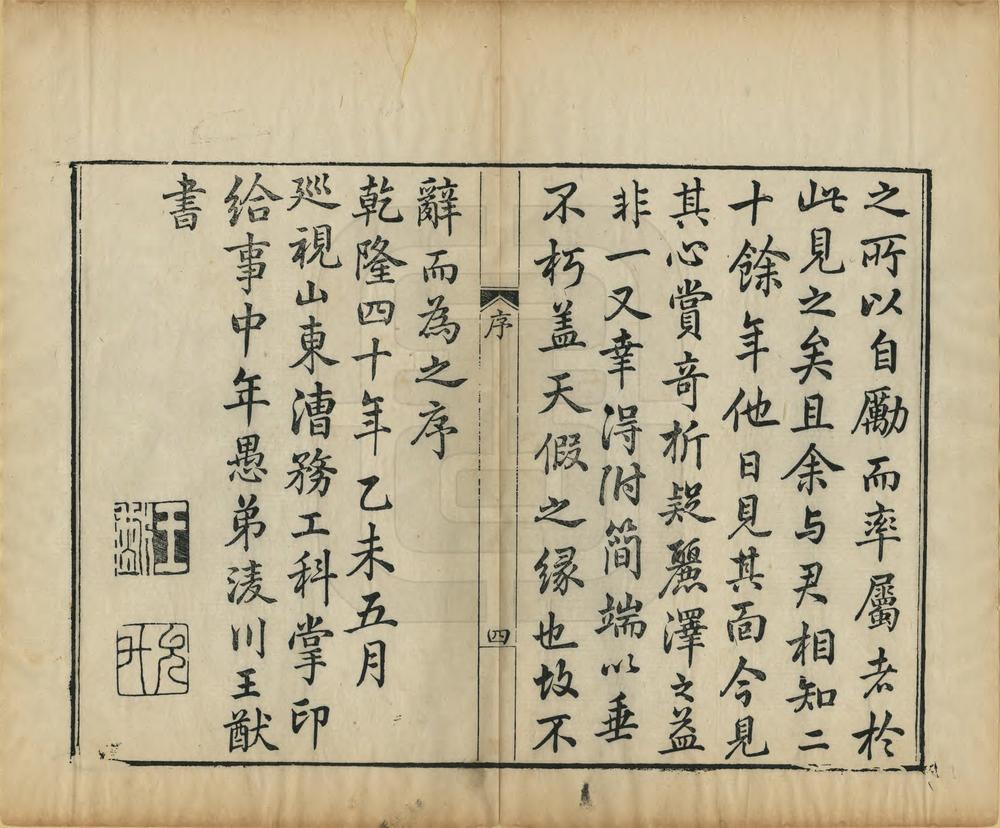 之所以自勵而率屬者於
此見之矣且余与君相知二
十餘年他日見其面今見
其心賞奇析疑麗澤之益
非一又幸得附簡端以垂
不朽盖天假之緣也故不
序
四
辭而為之序
乾隆四十年乙未五月
廵視山東漕務工科掌印
給事中年愚弟淩川王猷
書